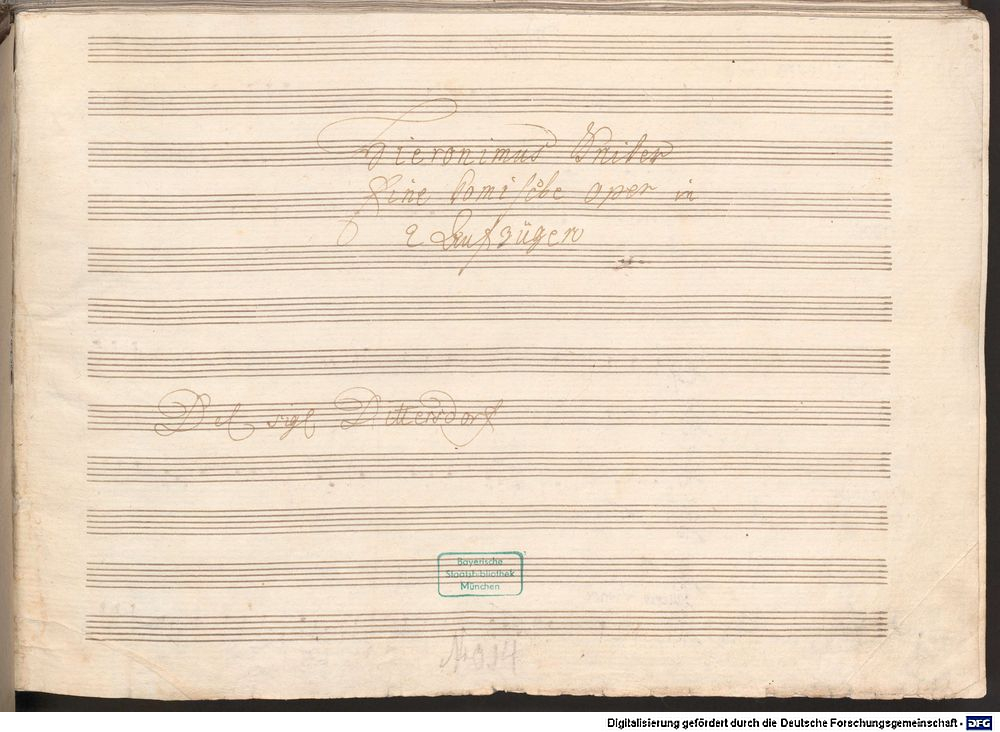 Hieronimus Kniker
Eine komische oper in
2 Aufzügen
Del sigl Dittersdorf
Bayerische
Staatsbibliothek
München
Digitalisierung gefördert durch die Deutsche Forschungsgemeinschaft - DFG